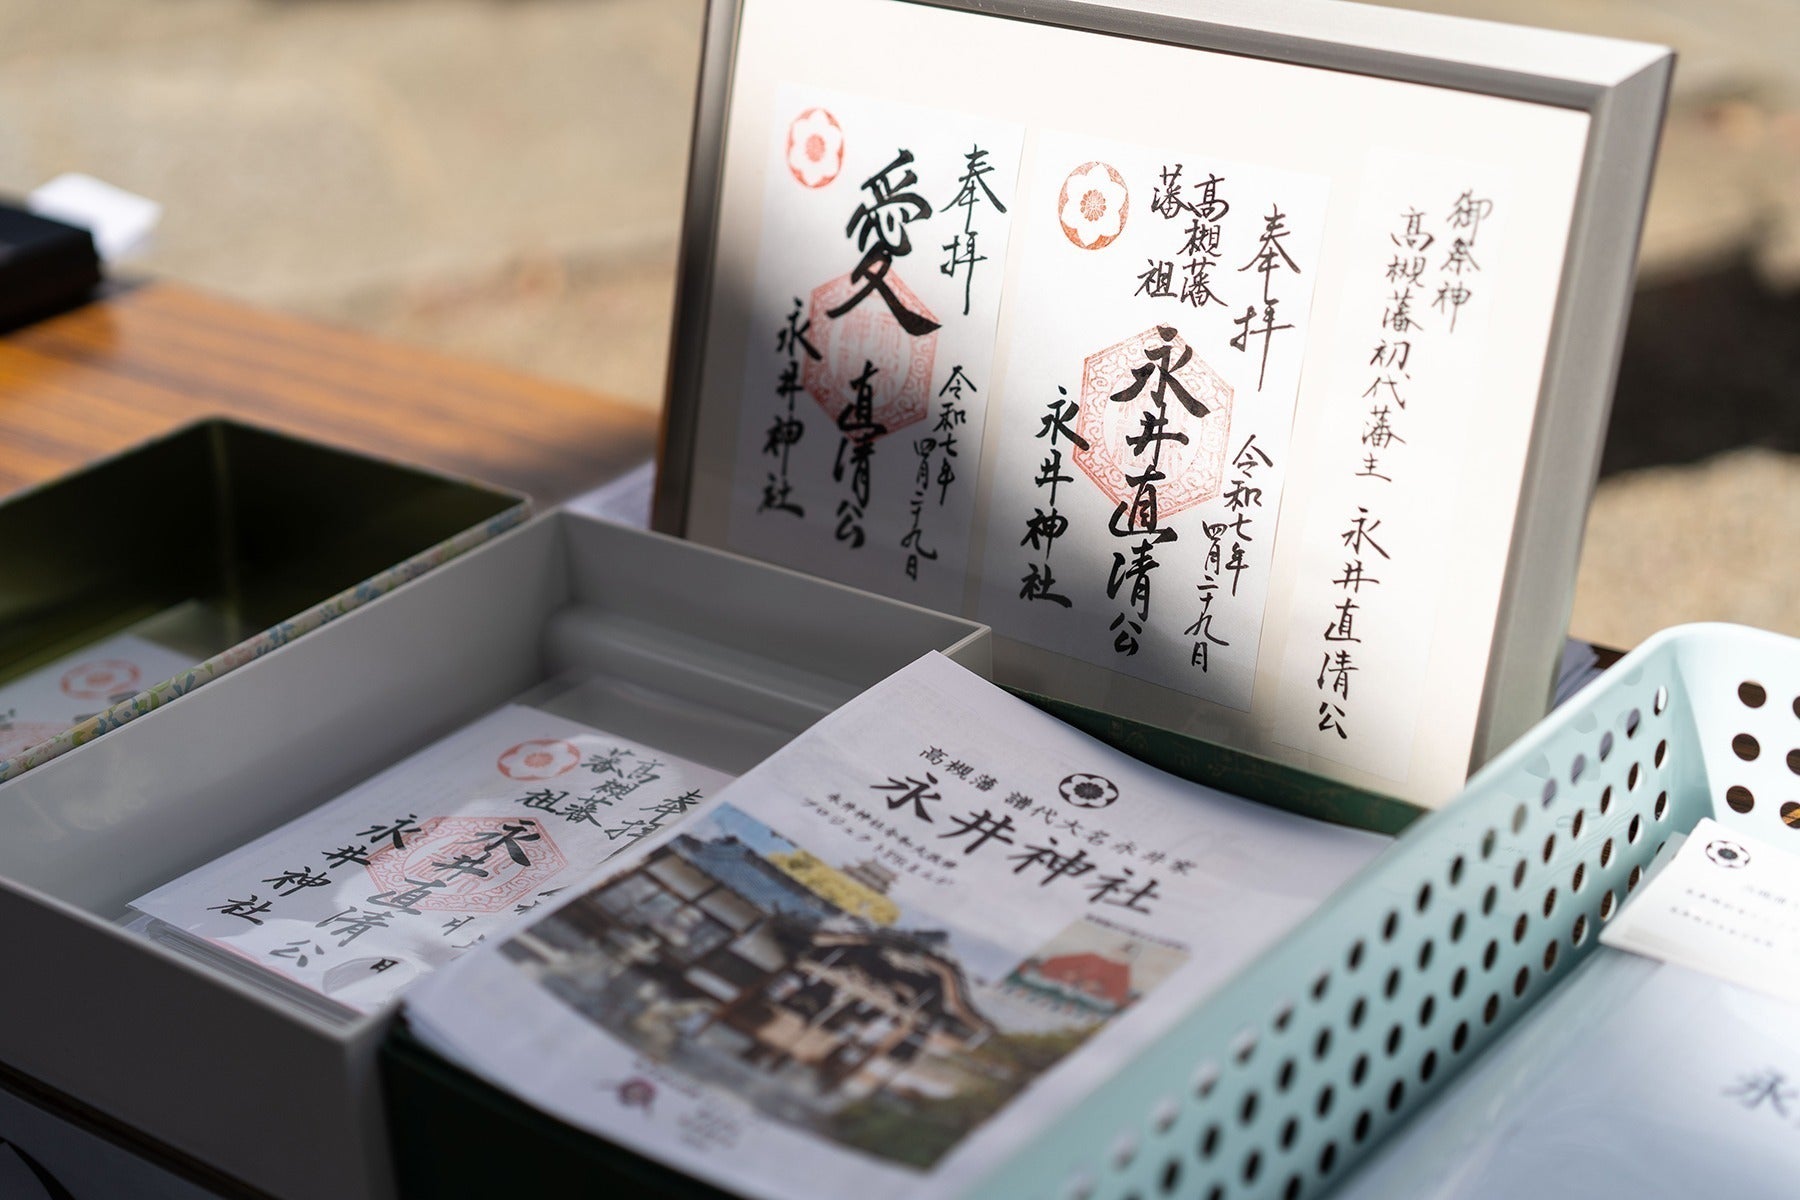 御祭神
高槻藩初代藩主 永井直清公
奉拝
高槻藩
藩祖
永井直清公
令和七年
四月二十九日
永井神社
奉拝
愛
直清公
令和七年
四月二十九日
永井神社
奉拝
高槻藩
藩祖
永井直清公
永井神社
高槻藩 譜代大名永井家
永井神社
永井神社令和大改修
プロジェクト
永